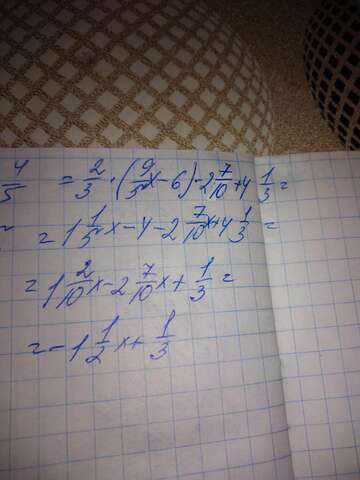 4/5 = 2/3 · (9/5x - 6) - 2 7/10 + 4 1/3 =
= 1 1/5x - 4 - 2 7/10x + 4 1/3 =
= 1 2/10x - 2 7/10x + 1/3 =
= - 1 1/2x + 1/3